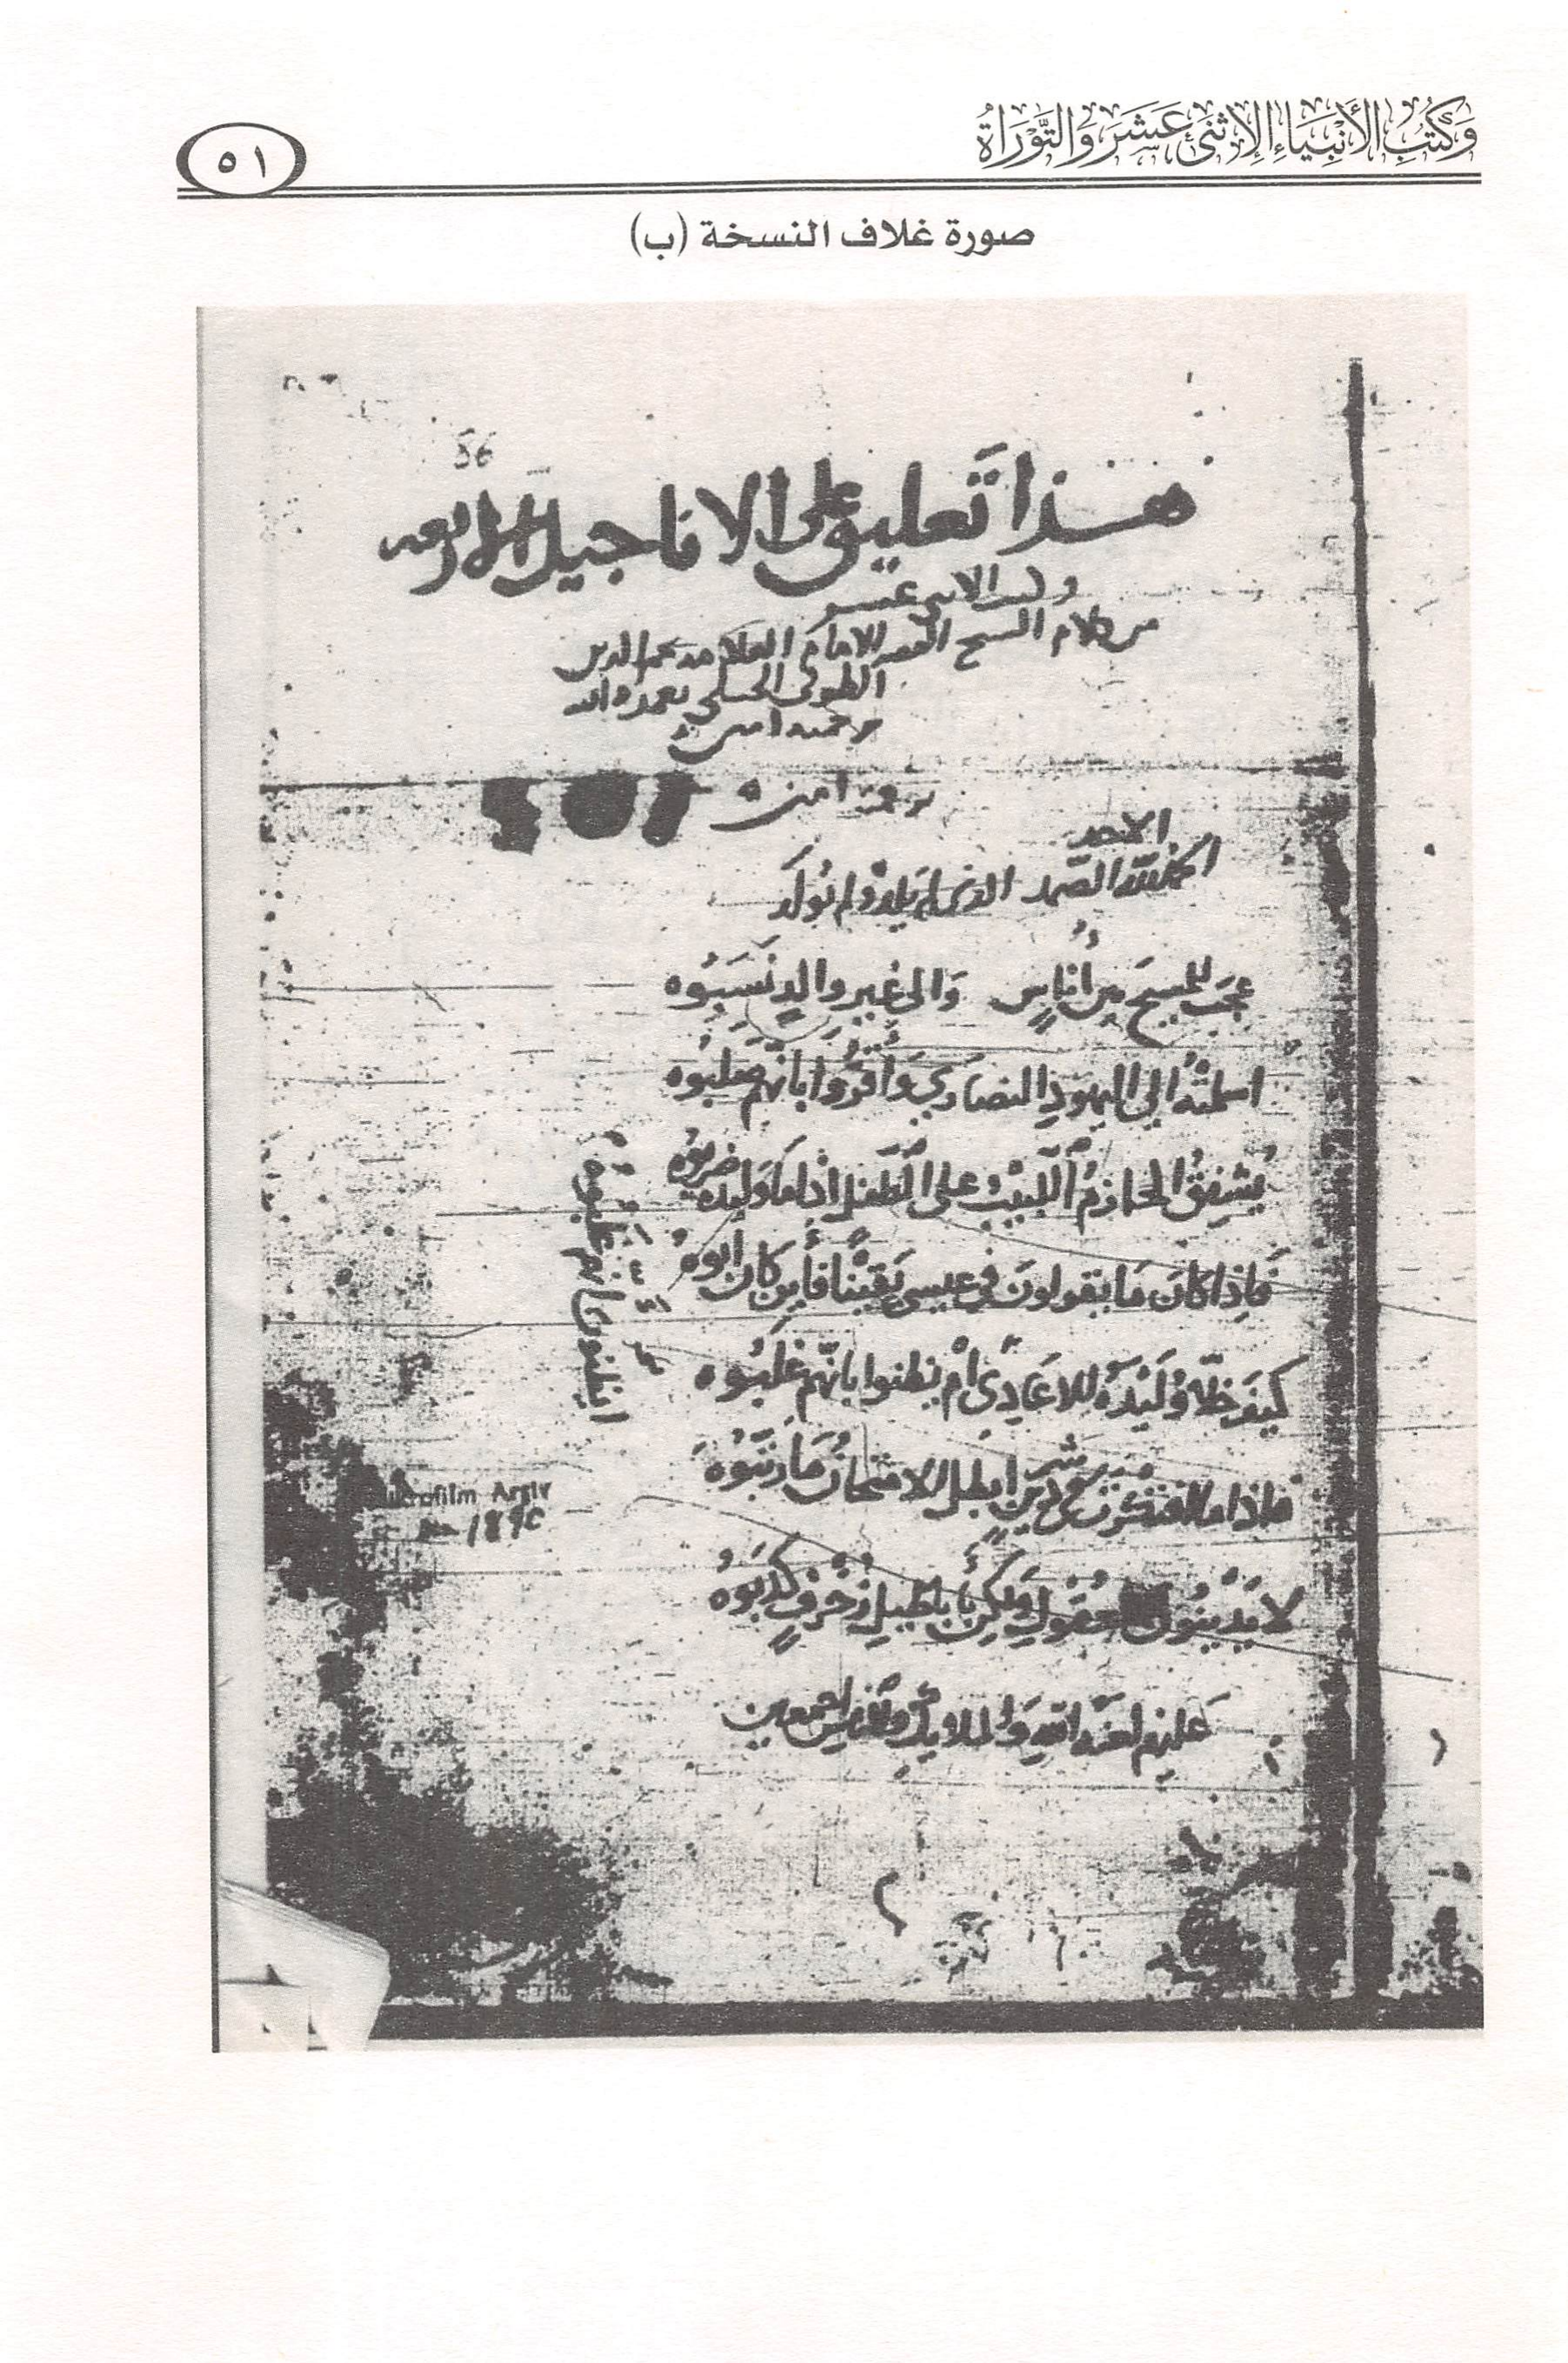 وَكُتُبِ الأَنْبِيَاءِ الاِثْنَيْ عَشَرَ وَالتَّوْرَاةُ
٥١
صورة غلاف النسخة (ب)
56
هذا تعليق على الاناجيل الاربعه
الاثنى عشر
من كلام الشيخ الامام العلامه نجم الدين
الطوفى الحنبلى تغمده الله
برحمته امين
برحمته امين
الاحد
الحمد لله الصمد الذى لم يلد ولم يولد
عجب للمسيح بين أناسٍ وَالى غير والدٍ نَسَبُوه
اسلمته الى اليهود النصارى وَأقرُّوا بأنهم صلبوه
يُشفِقُ الحازمُ اللبيبُ على الطفل اذا ما وليده ضربوه
فاذا كانَ مَا يقولون فى عيسى يقينًا فأين كان ابوهُ
كيف خلّا وُلَيْدَهُ للاعَادِى أم يظنوا بانّهم غلبُوه
فاذا ما سُن دينٍ ابطل الامتحانُ مَا رتّبُوهُ
لا يَدينُون بأباطيل زخرفٍ كذبوهُ
عليهم لعنة اللهِ وَالملائكةِ والناس اجمعين
ايظنون بانهم غلبوه
Mikrofilm Arşiv
No 1895